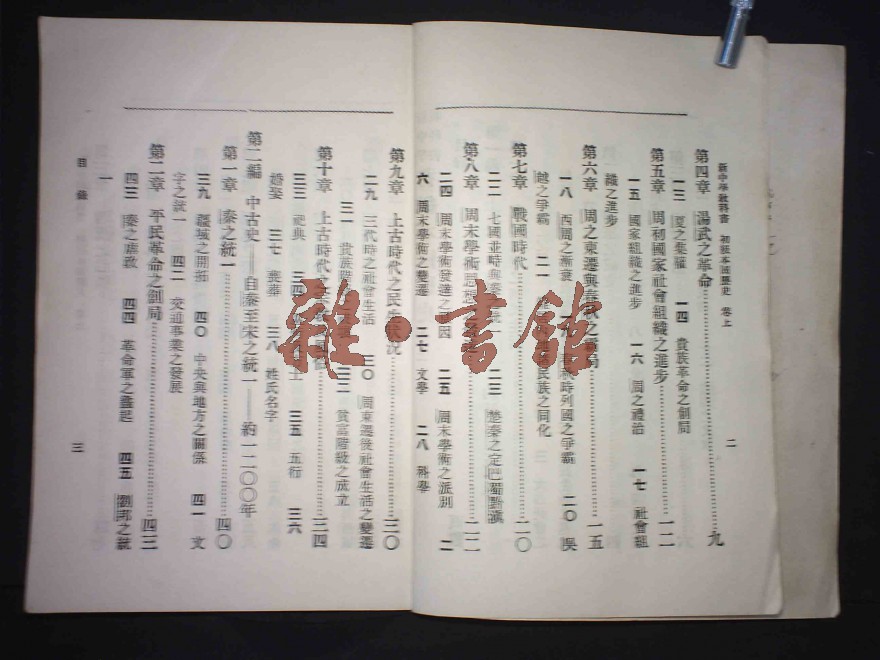 新中學教科書 初級本國歷史 卷上
二
第四章 湯武之革命 九
一三 夏之集權 一四 貴族革命之創局
第五章 周初國家社會組織之進步 一二
一五 國家組織之進步 一六 周之禮治 一七 社會組
織之進步
第六章 周之東遷與 之 局 一五
一八 西周之漸衰 時列國之爭霸 二〇 吳
越之爭霸 二一 民族之同化
第七章 戰國時代 二〇
二二 七國並時與 二三 楚秦之定巴蜀黔滇
第八章 周末學術思想 二二
二四 周末學術發達之 因 二五 周末學術之派別 二
六 周末學術之變遷 二七 文學 二八 科學
第九章 上古時代之民生狀況 三〇
二九 三代時之社會生活 三〇 周東遷後社會生活之變遷
三一 貴族階 三二 貧富階級之成立
第十章 上古時代之 三四
三三 祀典 三四 三五 五行 三六
婚娶 三七 喪葬 三八 姓氏名字
第二編 中古史——自秦至宋之統一——約一二〇〇年
第一章 秦之統一 四〇
三九 疆域之開拓 四〇 中央與地方之關係 四一 文
字之統一 四二 交通事業之發展
第二章 平民革命之創局 四三
四三 秦之虐政 四四 革命軍之蠭起 四五 劉邦之統
一
目錄
三
雜·書館